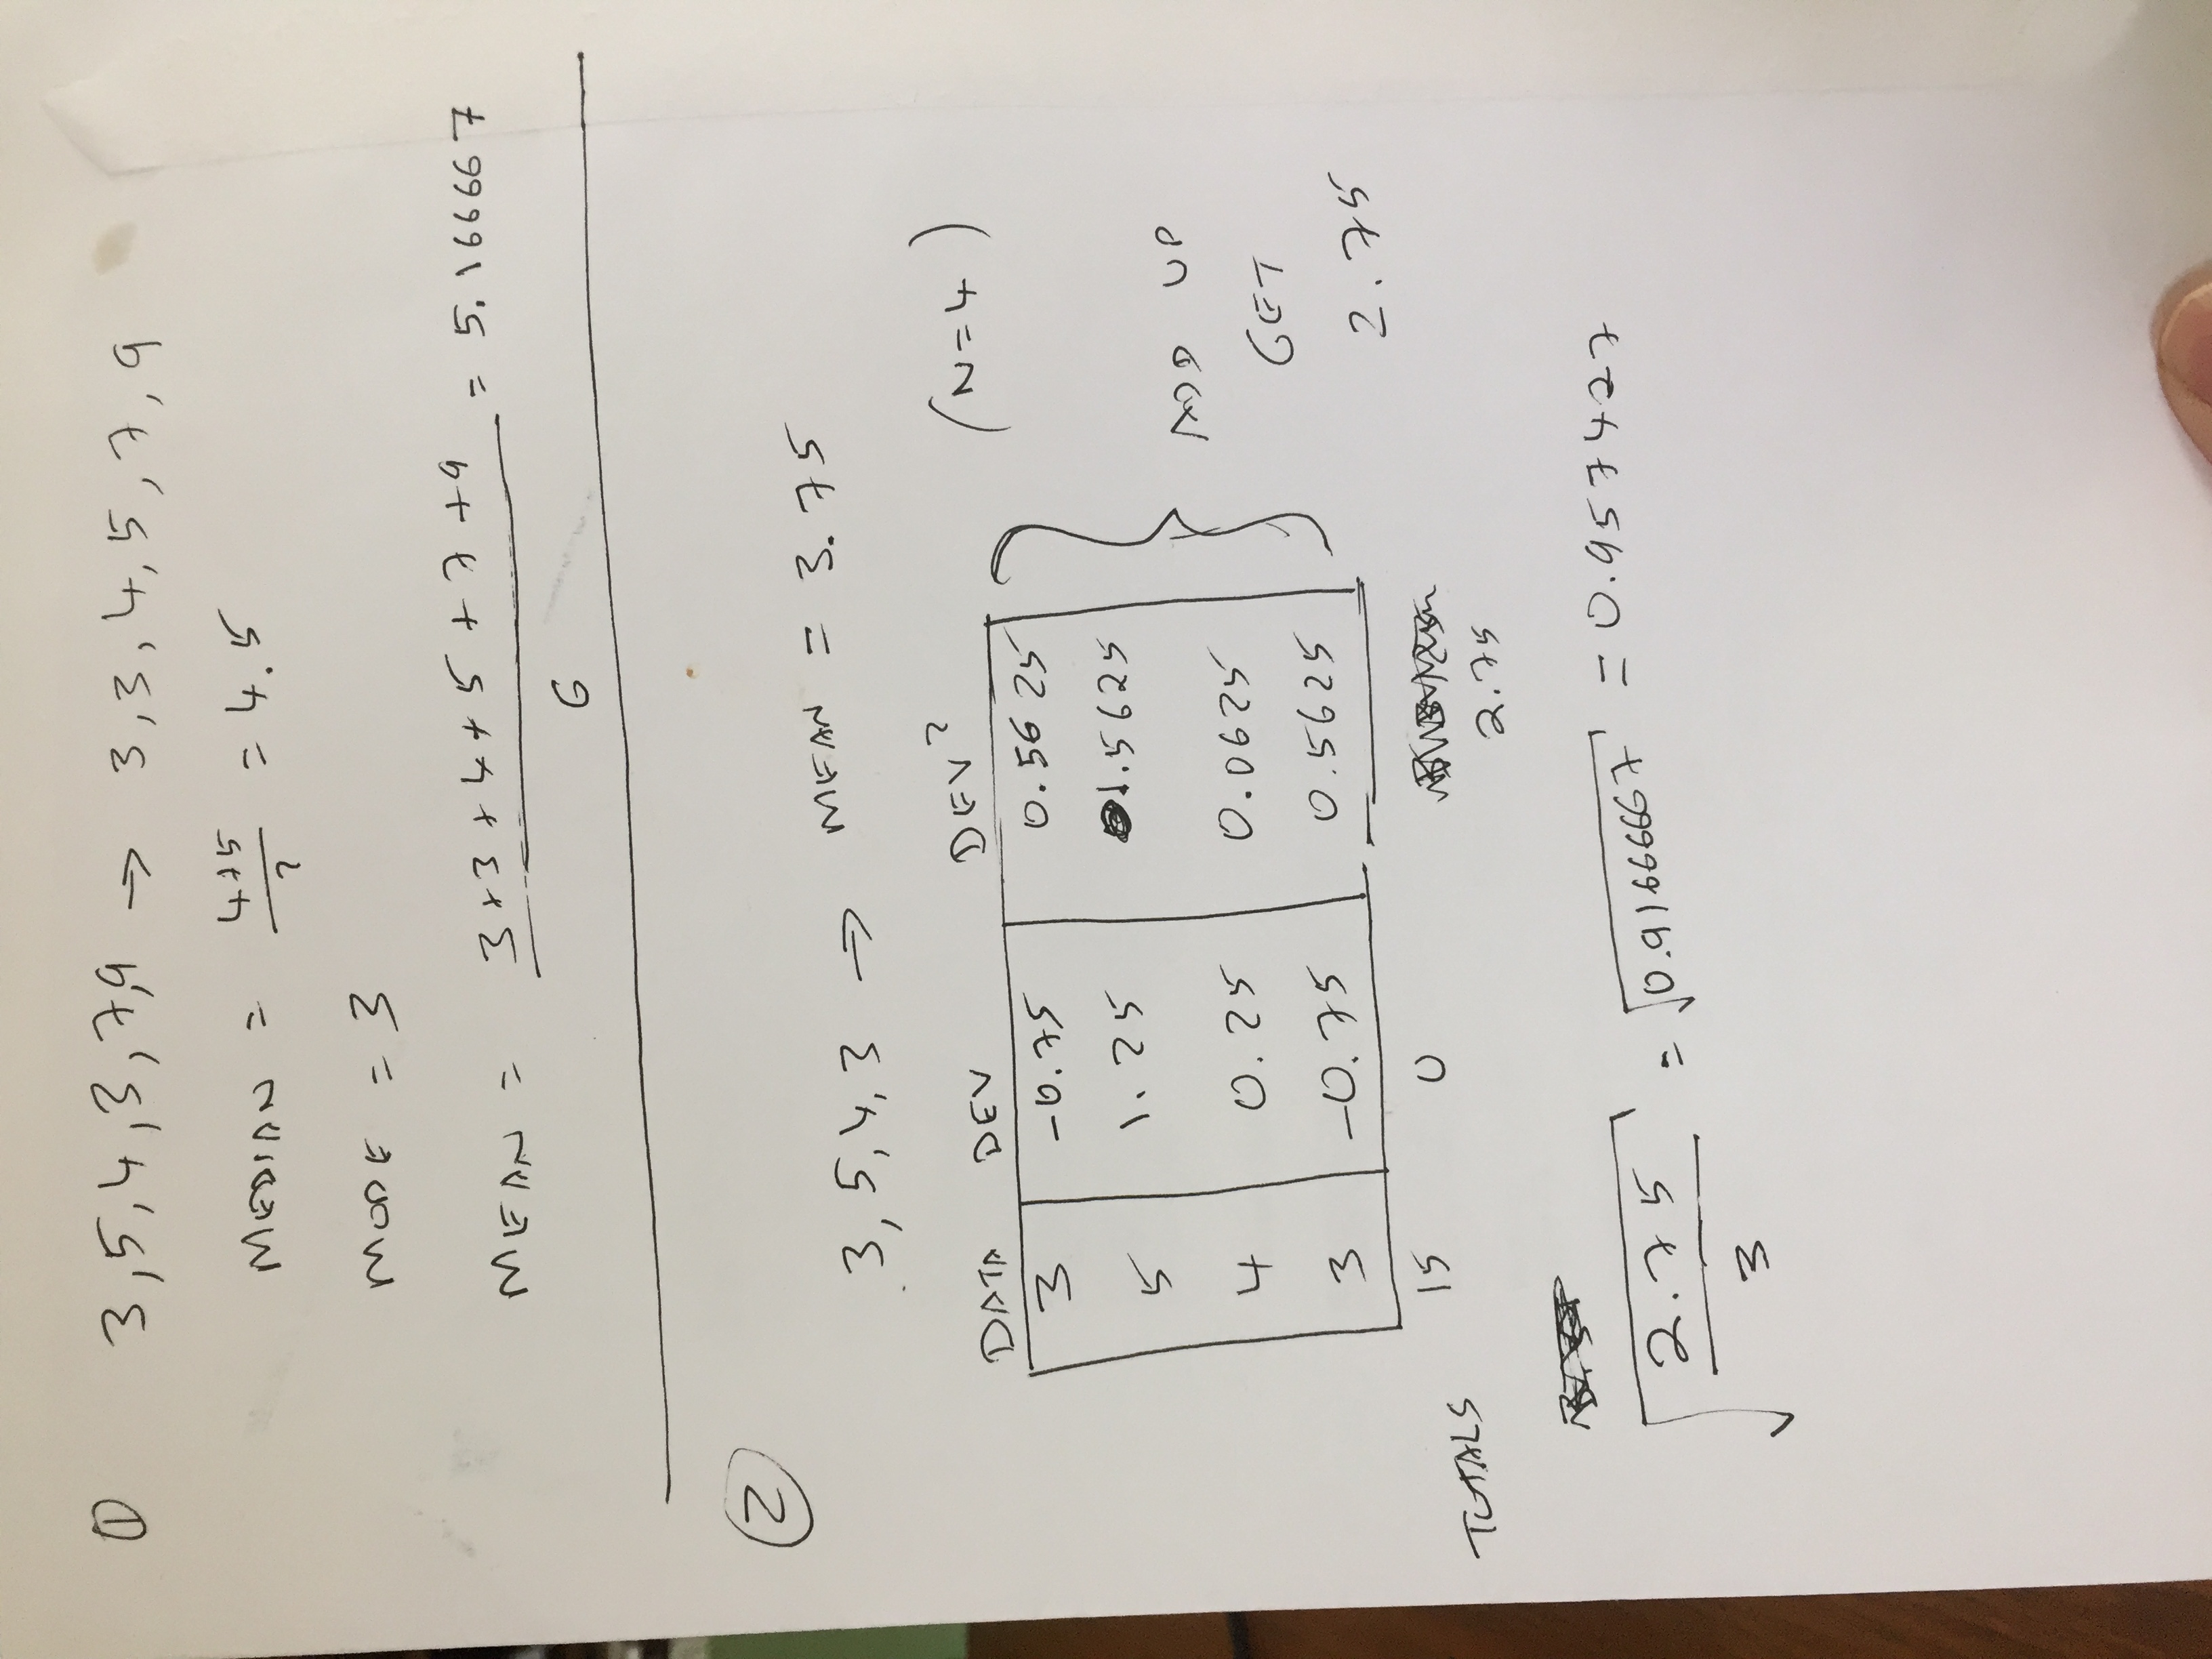 ① 3,5,4,3,7,9 → 3,3,4,5,7,9
MEDIAN = 4+5/2 = 4.5
MODE = 3
MEAN = 3+3+4+5+7+9 = 5.166667
6
② 3,5,4,3 → MEAN = 3.75
DATA DEV DEV² (N=4)
3 -0.75 0.5625
5 1.25 1.5625 ADD UP
4 0.25 0.0625 GET
3 -0.75 0.5625 2.75
TOTALS 15 0
2.75
√2.75/3 = √0.9166667 = 0.957427